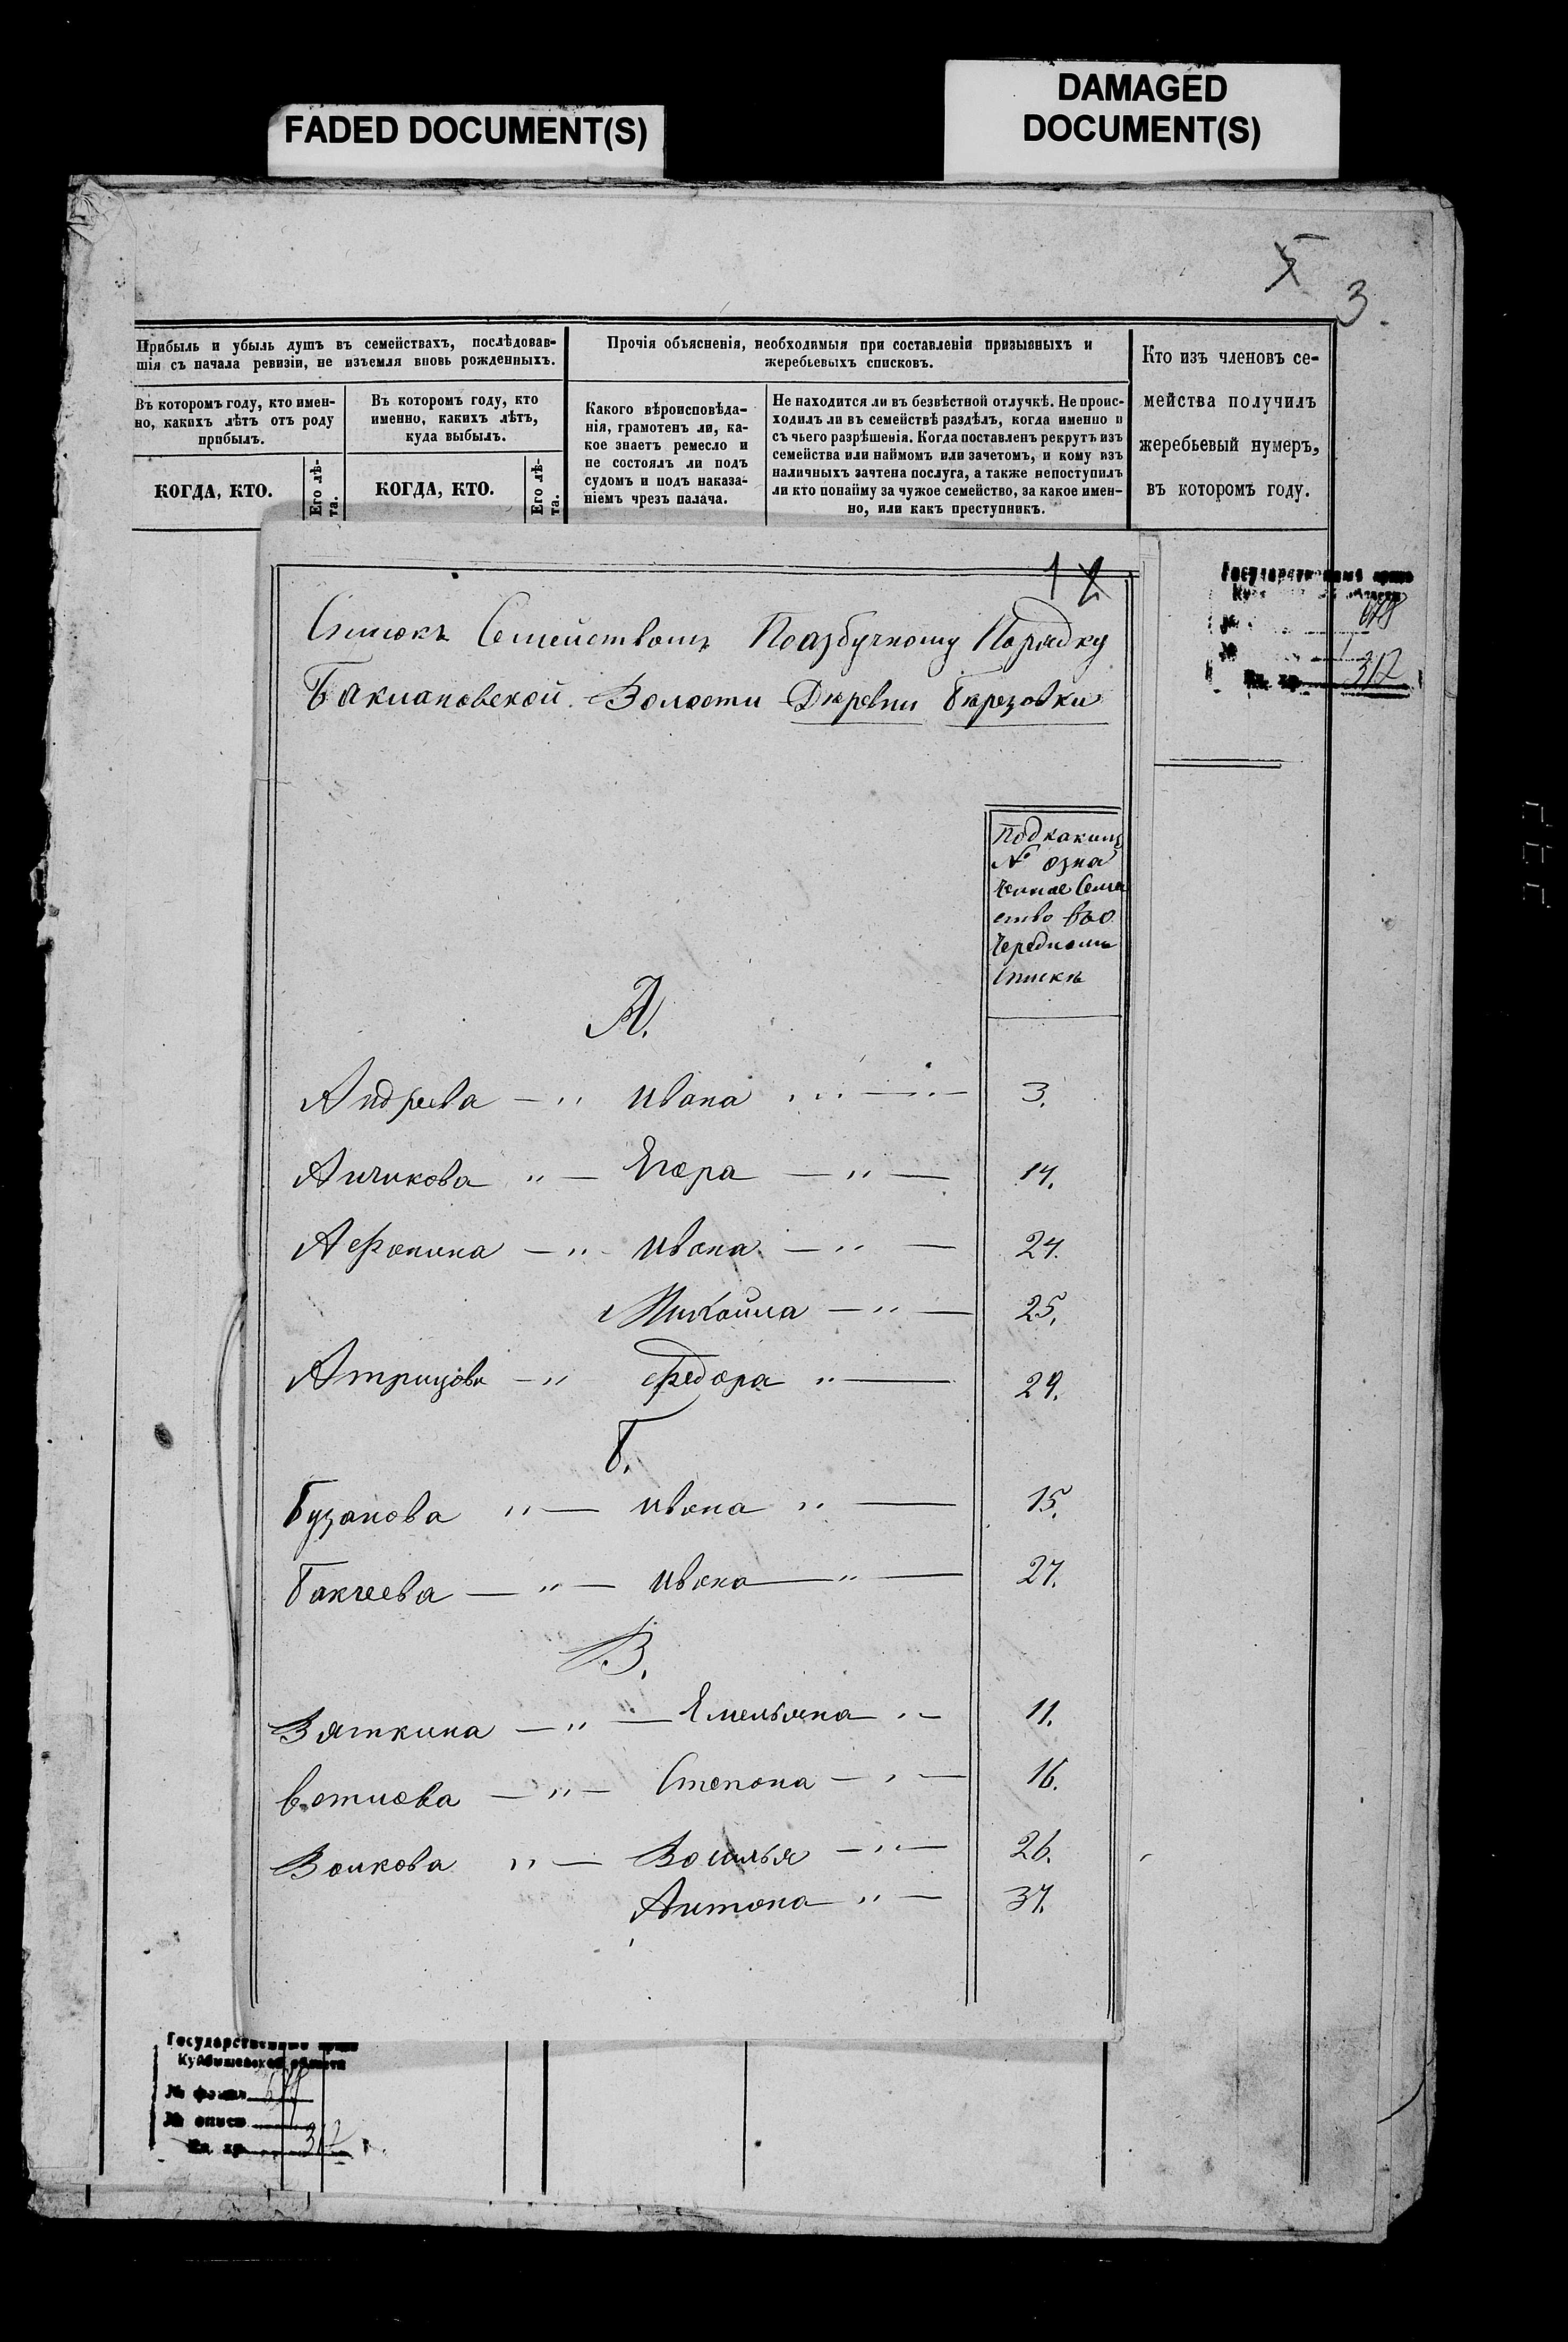 FADED DOCUMENT(S)
DAMAGED
DOCUMENT(S)
3
Прибыль и убыль душъ въ семействахъ, послѣдовав-
шія съ начала ревизіи, не изъемля вновь рожденныхъ.
Въ которомъ году, кто имен-
но, какихъ лѣтъ отъ роду
прибылъ.
КОГДА, КТО.
Его лѣ-
та.
Въ которомъ году, кто
именно, какихъ лѣтъ,
куда выбылъ.
КОГДА, КТО.
Его лѣ-
та.
Прочія объясненія, необходимыя при составленіи призывныхъ и
жеребьевыхъ списковъ.
Какого вѣроисповѣда-
нія, грамотенъ ли, ка-
кое знаетъ ремесло и
не состоялъ ли подъ
судомъ и подъ наказа-
ніемъ чрезъ палача.
Не находится ли въ безвѣстной отлучкѣ. Не проис-
ходилъ ли въ семействѣ раздѣлъ, когда именно и
съ чьего разрѣшенія. Когда поставленъ рекрутъ изъ
семейства или наймомъ или зачетомъ, и кому изъ
наличныхъ зачтена послуга, а также непоступилъ
ли кто понайму за чужое семейство, за какое имен-
но, или какъ преступникъ.
Кто изъ членовъ се-
мейства получилъ
жеребьевый нумеръ,
въ которомъ году.
1
Списокъ Семействомъ Поазбучному Порядку
Бакмановской Волости Дѣревни Бѣрезовки
Подкакимъ
№ озна
ченное Семе
ство въ о
чередномъ
Спискѣ
А.
Андреева Ивана 3.
Аничкова Егора 14.
Афонина Ивана 24.
Михайла 25.
Федора 29.
Б.
Бузанова Ивана 15.
Бакчеева Ивана 27.
В.
Вяткина Емельяна 11.
Степана 16.
Волкова Василья 26.
Антона 37.
Государственный архив
312
Государственный архив
Куйбышевской области
№ фонда
№ описи
Ед. хр. 312